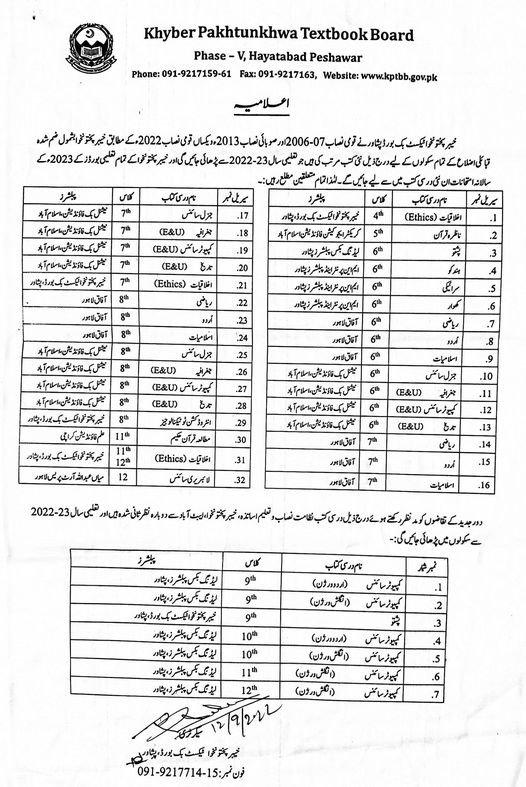 Khyber Pakhtunkhwa Textbook Board
Phase – V, Hayatabad Peshawar
Phone: 091-9217159-61 Fax: 091-9217163, Website: www.kptbb.gov.pk
اعلامیہ
خیبر پختونخوا ٹیکسٹ بک بورڈ پشاور نے قومی نصاب 07-2006 اور صوبائی نصاب 2013ء ویکساں قومی نصاب 2022ء کے مطابق خیبر پختونخوا بشمول ضم شدہ
قبائلی اضلاع کے تمام سکولوں کے لیے درج ذیل نئی کتب مرتب کی ہیں جو تعلیمی سال 23-2022 سے پڑھائی جائیں گی اور خیبر پختونخوا کے تمام تعلیمی بورڈز کے 2023ء کے
سالانہ امتحانات ان نئی درسی کتب میں سے لیے جائیں گے۔ لہٰذا تمام متعلقین مطلع رہیں:۔
سیریل نمبر نام درسی کتاب کلاس پبلشرز
1. اخلاقیات (Ethics) 4th خیبر پختونخوا ٹیکسٹ بک بورڈ، پشاور
2. ناظرہ قرآن 5th کریکٹر ایجوکیشن فاؤنڈیشن، اسلام آباد
3. پشتو 6th لیڈنگ بکس پبلشرز، پشاور
4. ہندکو 6th ایم این پرنٹرز اینڈ پبلشرز پشاور
5. سرائیکی 6th ایم این پرنٹرز اینڈ پبلشرز پشاور
6. کھوار 6th ایم این پرنٹرز اینڈ پبلشرز پشاور
7. ریاضی 6th آفاق لاہور
8. اُردو 6th آفاق لاہور
9. اسلامیات 6th آفاق لاہور
10. جنرل سائنس 6th نیشنل بک فاؤنڈیشن، اسلام آباد
11. جغرافیہ (E&U) 6th نیشنل بک فاؤنڈیشن، اسلام آباد
12. کمپیوٹر سائنس (E&U) 6th نیشنل بک فاؤنڈیشن، اسلام آباد
13. تاریخ (E&U) 6th نیشنل بک فاؤنڈیشن، اسلام آباد
14. ریاضی 7th آفاق لاہور
15. اُردو 7th آفاق لاہور
16. اسلامیات 7th آفاق لاہور
سیریل نمبر نام درسی کتاب کلاس پبلشرز
17. جنرل سائنس 7th نیشنل بک فاؤنڈیشن، اسلام آباد
18. جغرافیہ (E&U) 7th نیشنل بک فاؤنڈیشن، اسلام آباد
19. کمپیوٹر سائنس (E&U) 7th نیشنل بک فاؤنڈیشن، اسلام آباد
20. تاریخ (E&U) 7th نیشنل بک فاؤنڈیشن، اسلام آباد
21. اخلاقیات (Ethics) 7th خیبر پختونخوا ٹیکسٹ بک بورڈ، پشاور
22. ریاضی 8th آفاق لاہور
23. اُردو 8th آفاق لاہور
24. اسلامیات 8th آفاق لاہور
25. جنرل سائنس 8th نیشنل بک فاؤنڈیشن، اسلام آباد
26. جغرافیہ (E&U) 8th نیشنل بک فاؤنڈیشن، اسلام آباد
27. کمپیوٹر سائنس (E&U) 8th نیشنل بک فاؤنڈیشن، اسلام آباد
28. تاریخ (E&U) 8th نیشنل بک فاؤنڈیشن، اسلام آباد
29. انٹروڈکشن ٹو ٹیکنالوجیز 8th خیبر پختونخوا ٹیکسٹ بک بورڈ، پشاور
30. مطالعہ قرآن حکیم 11th علم فاؤنڈیشن کراچی
31. اخلاقیات (Ethics) 11th 12th خیبر پختونخوا ٹیکسٹ بک بورڈ، پشاور
32. لائبریری سائنس 12 میاں عبداللہ آرٹ پریس لاہور
دور جدید کے تقاضوں کو مد نظر رکھتے ہوئے درج ذیل درسی کتب نظامت نصاب و تعلیم اساتذہ، خیبر پختونخوا، ایبٹ آباد سے دوبارہ نظر ثانی شدہ ہیں اور تعلیمی سال 23-2022
سے سکولوں میں پڑھائی جائیں گی:۔
نمبر شمار نام درسی کتاب کلاس پبلشرز
1. کمپیوٹر سائنس (اردو ورژن) 9th لیڈنگ بکس پبلشرز، پشاور
2. کمپیوٹر سائنس (انگلش ورژن) 9th لیڈنگ بکس پبلشرز، پشاور
3. پشتو 9th خیبر پختونخوا ٹیکسٹ بک بورڈ، پشاور
4. کمپیوٹر سائنس (اردو ورژن) 10th لیڈنگ بکس پبلشرز، پشاور
5. کمپیوٹر سائنس (انگلش ورژن) 10th لیڈنگ بکس پبلشرز، پشاور
6. کمپیوٹر سائنس (انگلش ورژن) 11th لیڈنگ بکس پبلشرز، پشاور
7. کمپیوٹر سائنس (انگلش ورژن) 12th لیڈنگ بکس پبلشرز، پشاور
12/9/2022
سیکرٹری
خیبر پختونخوا ٹیکسٹ بک بورڈ، پشاور
فون نمبر: 15-9217714-091